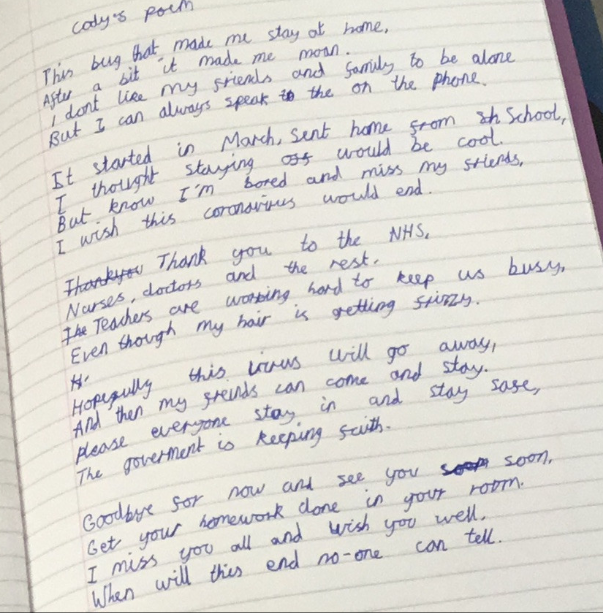 Cody's Poem
This bug that made me stay at home,
After a bit it made me moan.
I dont like my friends and family to be alone
But I can always speak to the on the phone.
It started in March, sent home from sh School,
I thought staying off would be cool.
But know I'm bored and miss my friends,
I wish this coronavirus would end.
Thankyou Thank you to the NHS,
Nurses, doctors and the rest.
The Teachers are working hard to keep us busy,
Even though my hair is getting frizzy.
H
Hopefully this virus will go away,
And then my freinds can come and stay.
Please everyone stay in and stay safe,
The goverment is keeping faith.
Goodbye for now and see you soon soon,
Get your homework done in your room.
I miss you all and wish you well,
When will this end no-one can tell.